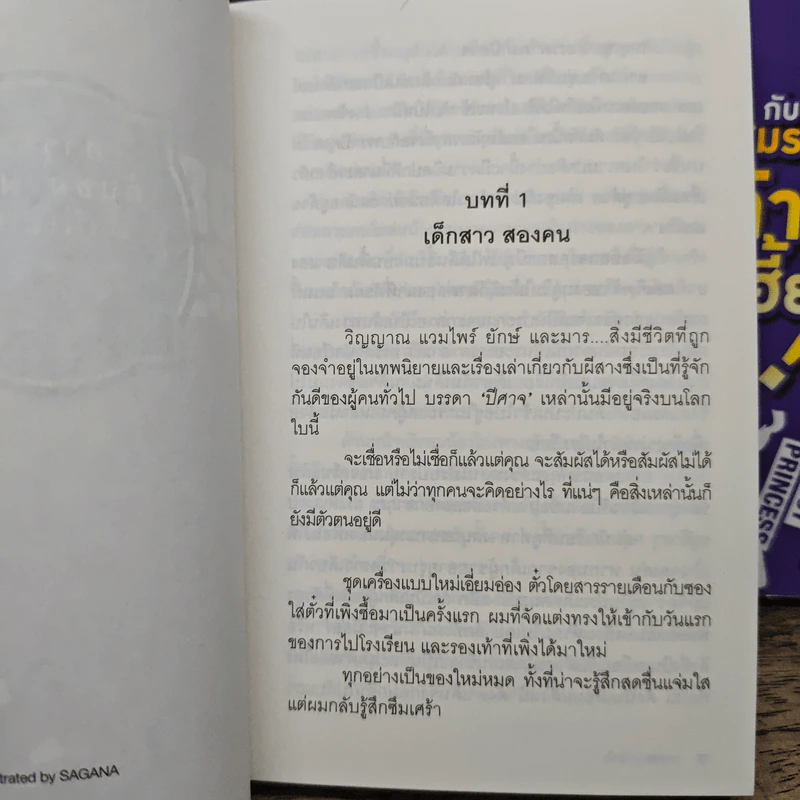 บทที่ 1
เด็กสาว สองคน
วิญญาณ แวมไพร์ ยักษ์ และมาร....สิ่งมีชีวิตที่ถูก
จองจำอยู่ในเทพนิยายและเรื่องเล่าเกี่ยวกับผีสางซึ่งเป็นที่รู้จัก
กันดีของผู้คนทั่วไป บรรดา ‘ปีศาจ’ เหล่านั้นมีอยู่จริงบนโลก
ใบนี้
จะเชื่อหรือไม่เชื่อก็แล้วแต่คุณ จะสัมผัสได้หรือสัมผัสไม่ได้
ก็แล้วแต่คุณ แต่ไม่ว่าทุกคนจะคิดอย่างไร ที่แน่ๆ คือสิ่งเหล่านั้นก็
ยังมีตัวตนอยู่ดี
ชุดเครื่องแบบใหม่เอี่ยมอ่อง ตั๋วโดยสารรายเดือนกับซอง
ใส่ตั๋วที่เพิ่งซื้อมาเป็นครั้งแรก ผมที่จัดแต่งทรงให้เข้ากับวันแรก
ของการไปโรงเรียน และรองเท้าที่เพิ่งได้มาใหม่
ทุกอย่างเป็นของใหม่หมด ทั้งที่น่าจะรู้สึกสดชื่นแจ่มใส
แต่ผมกลับรู้สึกซึมเศร้า
trated by SAGANA
กับ
PRINCESS